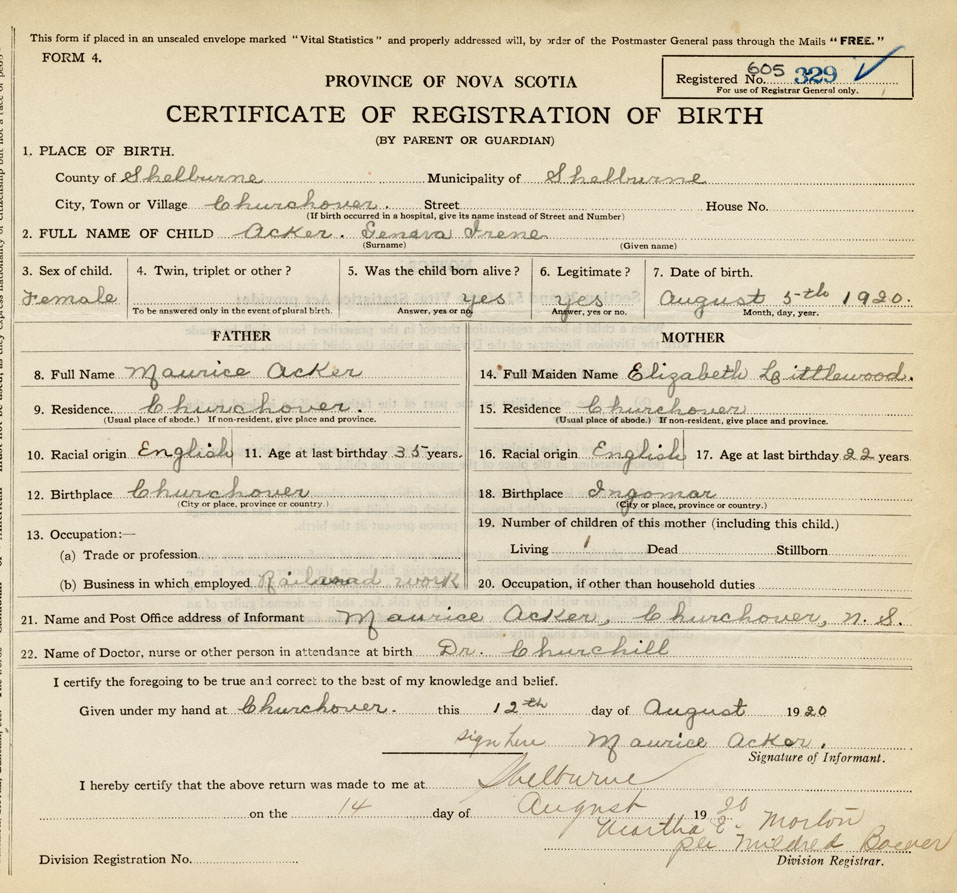 This form if placed in an unsealed envelope marked "Vital Statistics" and properly addressed will, by order of the Postmaster General pass through the Mails "FREE."
FORM 4.
Registered No. 605 329
For use of Registrar General only.
PROVINCE OF NOVA SCOTIA
CERTIFICATE OF REGISTRATION OF BIRTH
(BY PARENT OR GUARDIAN)
1. PLACE OF BIRTH.
County of Shelburne Municipality of Shelburne
City, Town or Village Churchover. Street House No.
(If birth occurred in a hospital, give its name instead of Street and Number)
2. FULL NAME OF CHILD Acker. Geneva Irene
(Surname) (Given name)
3. Sex of child. 4. Twin, triplet or other? 5. Was the child born alive? 6. Legitimate? 7. Date of birth.
Female yes yes August 5th 1920.
To be answered only in the event of plural birth. Answer, yes or no. Answer, yes or no. Month, day, year.
FATHER MOTHER
8. Full Name Maurice Acker 14. Full Maiden Name Elizabeth Littlewood.
9. Residence. Churchover. 15. Residence Churchover
(Usual place of abode.) If non-resident, give place and province. (Usual place of abode.) If non-resident, give place and province.
10. Racial origin English 11. Age at last birthday 35 years. 16. Racial origin English 17. Age at last birthday 22 years
12. Birthplace Churchover 18. Birthplace Ingomar
(City or place, province or country.) (City or place, province or country.)
13. Occupation:— 19. Number of children of this mother (including this child.)
(a) Trade or profession Living 1 Dead Stillborn
(b) Business in which employed Railroad work 20. Occupation, if other than household duties
21. Name and Post Office address of Informant Maurice Acker, Churchover, N. S.
22. Name of Doctor, nurse or other person in attendance at birth Dr. Churchill
I certify the foregoing to be true and correct to the best of my knowledge and belief.
Given under my hand at Churchover. this 12th day of August 1920
sign here Maurice Acker.
Signature of Informant.
I hereby certify that the above return was made to me at Shelburne
on the 14 day of August 1920
Martha E. Morton
per Mildred Bower
Division Registration No. Division Registrar.